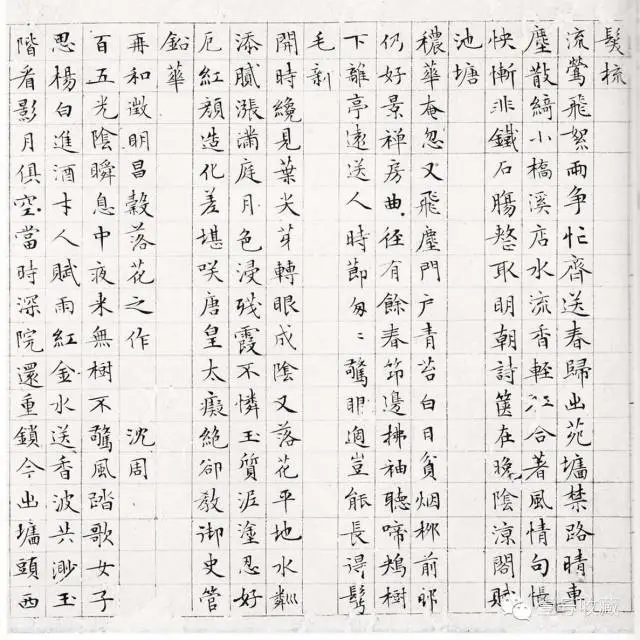 髮梳
流鶯飛絮兩爭忙齊送春歸出苑墻禁路晴車
塵散綺小橋溪店水流香輕合著風情句悵
怏慚非鐵石腸整取明朝詩篋在晚陰涼閣賦
池塘
穠華奄忽又飛塵門戶青苔白日貧烟柳前郎
仍好景禅房曲徑有餘春筇邊拂袖聽啼鴂樹
下離亭遠送人時節匆〻驚眼過豈能長得鬢
毛新
開時纔見葉尖芽轉眼成陰又落花平地水粼
添膩漲滿庭月色浸殘霞不憐玉質泥塗忍好
厄紅顏造化差堪咲唐皇太癡絕卻教御史管
鉛華
再和徵明昌穀落花之作 沈周
百五光陰瞬息中夜來無樹不驚風踏歌女子
思楊白進酒才人賦雨紅金水送香波共渺玉
階看影月俱空當時深院還重鎖今出墻頭西